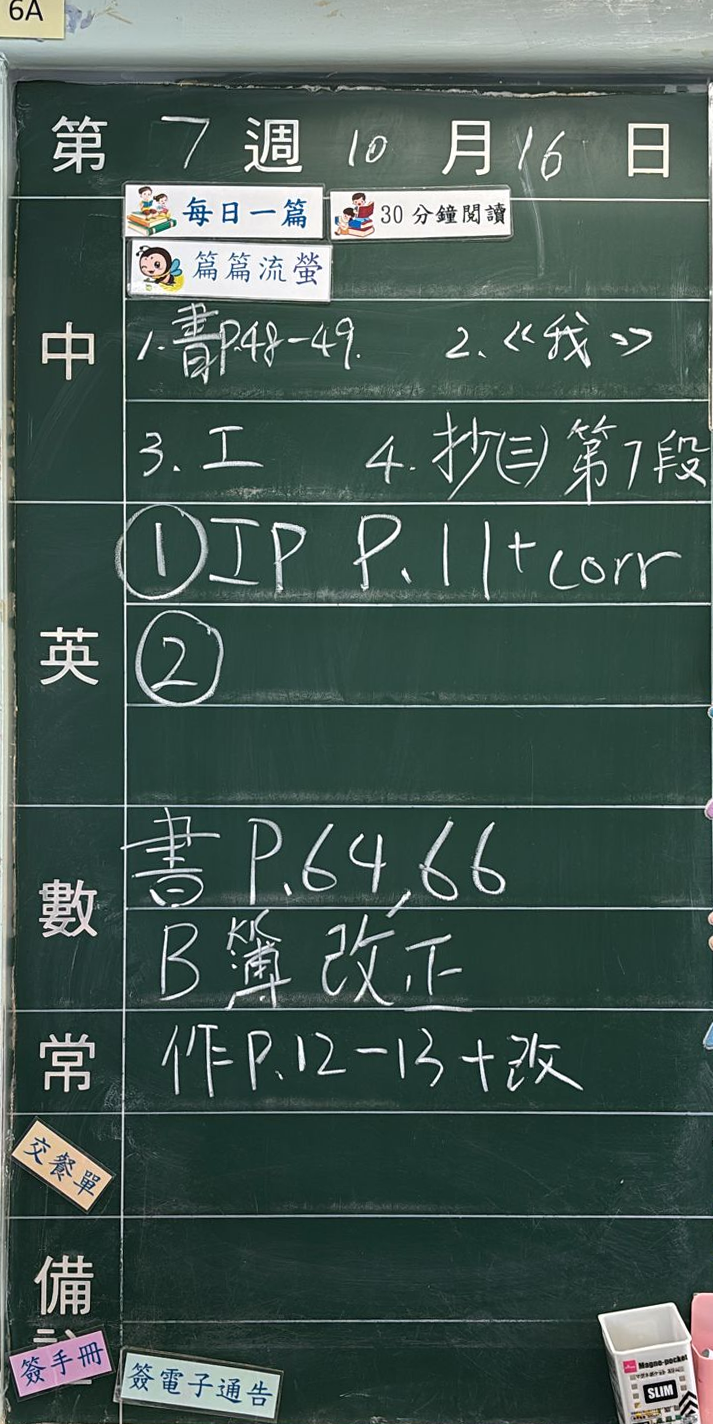 6A
第 7 週 10 月 16 日
每日一篇 30分鐘閱讀
篇篇流螢
中
1. 書P.48-49. 2. 《我》
3. 工 4. 抄(三)第7段
英
① IP P.11+corr
②
數
書 P.64,66
B簿 改正
常
作P.12-13+改
交餐單
備
簽手冊 簽電子通告
Magne-pocket
SLIM